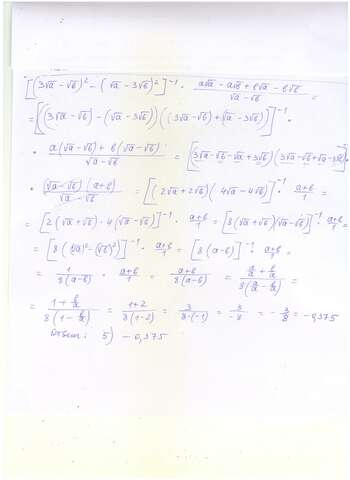 [(3√a - √b)² - (√a - 3√b)²]⁻¹ · (a√a - a√b + b√a - b√b)/(√a - √b) =
= [((3√a - √b) - (√a - 3√b))((3√a - √b) + (√a - 3√b))]⁻¹ ·
· (a(√a - √b) + b(√a - √b))/(√a - √b) = [(3√a - √b - √a + 3√b)(3√a - √b + √a - 3√b)]
· ((√a - √b)(a+b))/(√a - √b) = [(2√a + 2√b)(4√a - 4√b)]⁻¹ · (a+b)/1 =
= [2(√a + √b) · 4(√a - √b)]⁻¹ · (a+b)/1 = [8(√a + √b)(√a - √b)]⁻¹ · (a+b)/1 =
= [8((√a)² - (√b)²)]⁻¹ · (a+b)/1 = [8(a-b)]⁻¹ · (a+b)/1 =
= 1/(8(a-b)) · (a+b)/1 = (a+b)/(8(a-b)) = (a/a + b/a)/(8(a/a - b/a)) =
= (1 + b/a)/(8(1 - b/a)) = (1+2)/(8(1-2)) = 3/(8·(-1)) = 3/-8 = - 3/8 = -0,375
Ответ: 5) -0,375